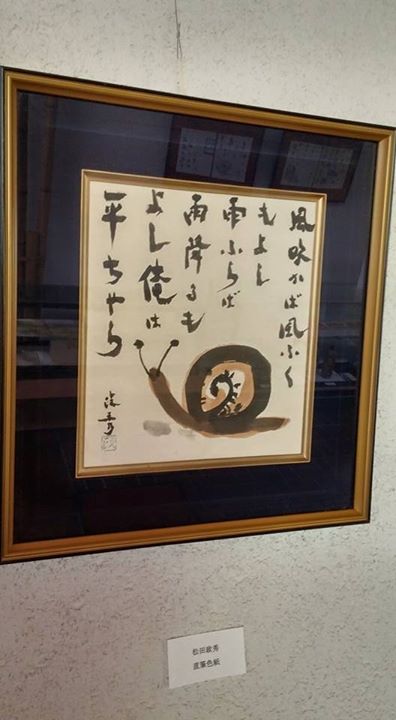 風吹かば風ふく
もよし
雨ふらば
雨降るも
よし俺は
平ちやら
松田
直筆色紙